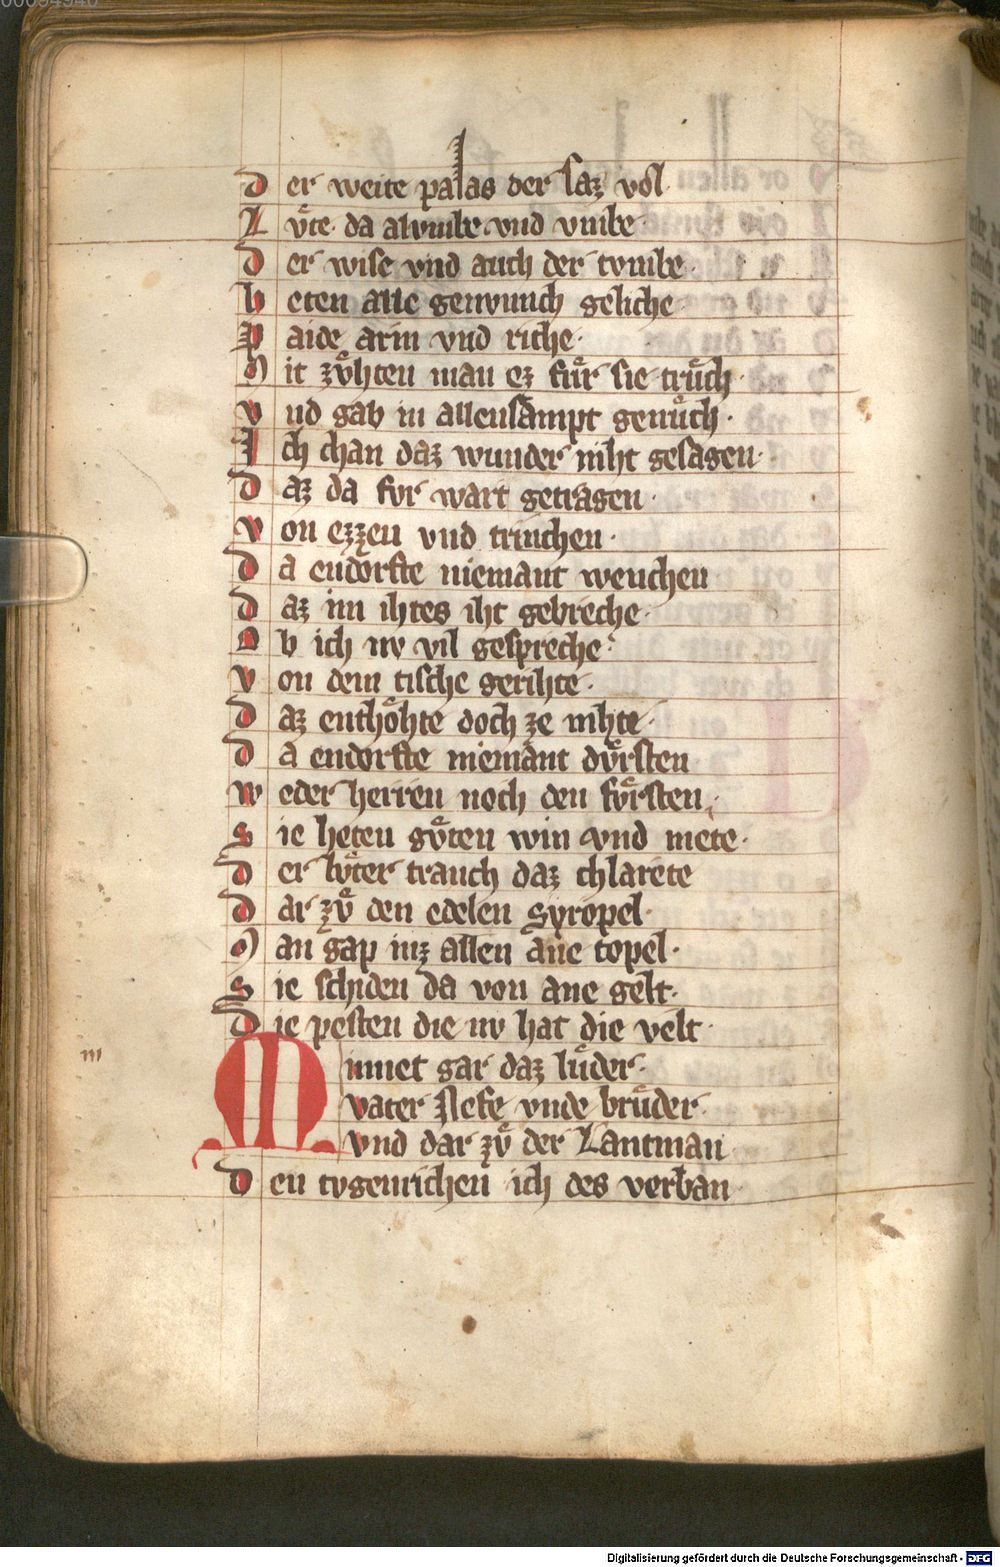 00054940
Der weite palas der saz vol·
Lvͦte· da alvmbe vnd vmbe·
Der wise vnd auch der tvmbe·
Heten alle genvnnch geliche·
Paide arm vnd riche·
Mit zvͤhten man ez fuͤr sie truͤch·
Vnd gab in allensampt genuͤch·
Ich chan daz wunder niht gesagen·
Daz da fvr wart getragen·
Von ezzen vnd trinchen·
Da endorfte niemant wenchen
Daz im ihtes iht gebreche·
Ob ich nv vil gespreche·
Von dem tische gerihte·
Daz enthoͤhte doch ze nihte·
Da endorfte niemant dvͤrsten
Weder herren noch den fvͤrsten·
Sie heten gvͤten win vnd mete·
Der lvͤter tranch daz chlarete
Dar zvͤ den edelen syropel·
Man gap inz allen ane topel·
Sie schiden da von ane gelt·
Die pesten die nv hat die velt·
m
Minnet gar daz luͤder·
vater Nefe vnde bruͤder·
vnd dar zvͤ der Lantman
Den tvgenrichen ich des verban·
Digitalisierung gefördert durch die Deutsche Forschungsgemeinschaft - DFG